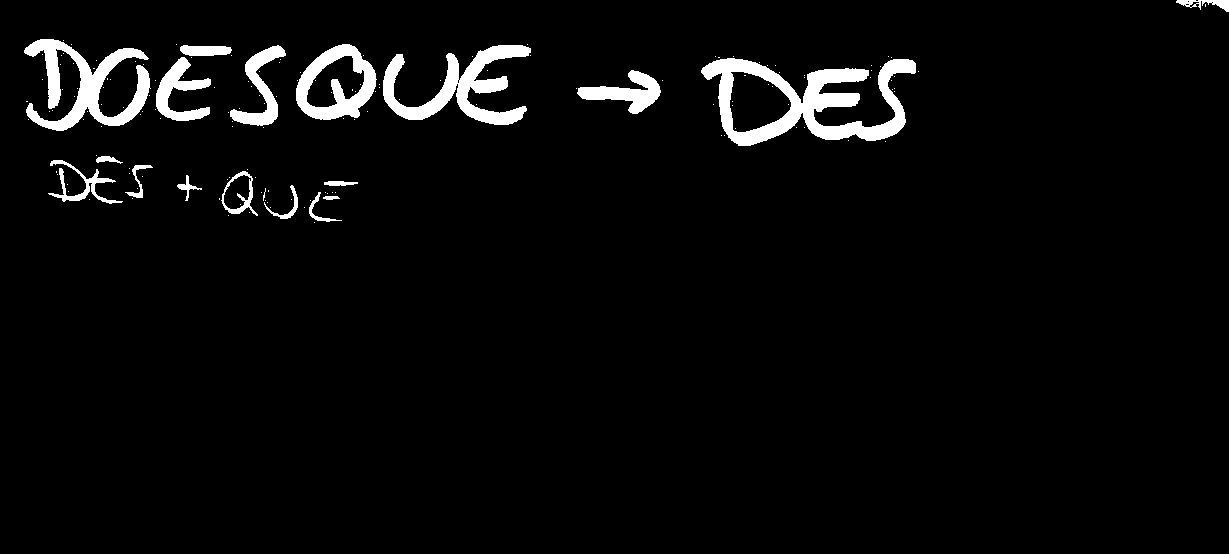 DOESQUE → DES
DES + QUE